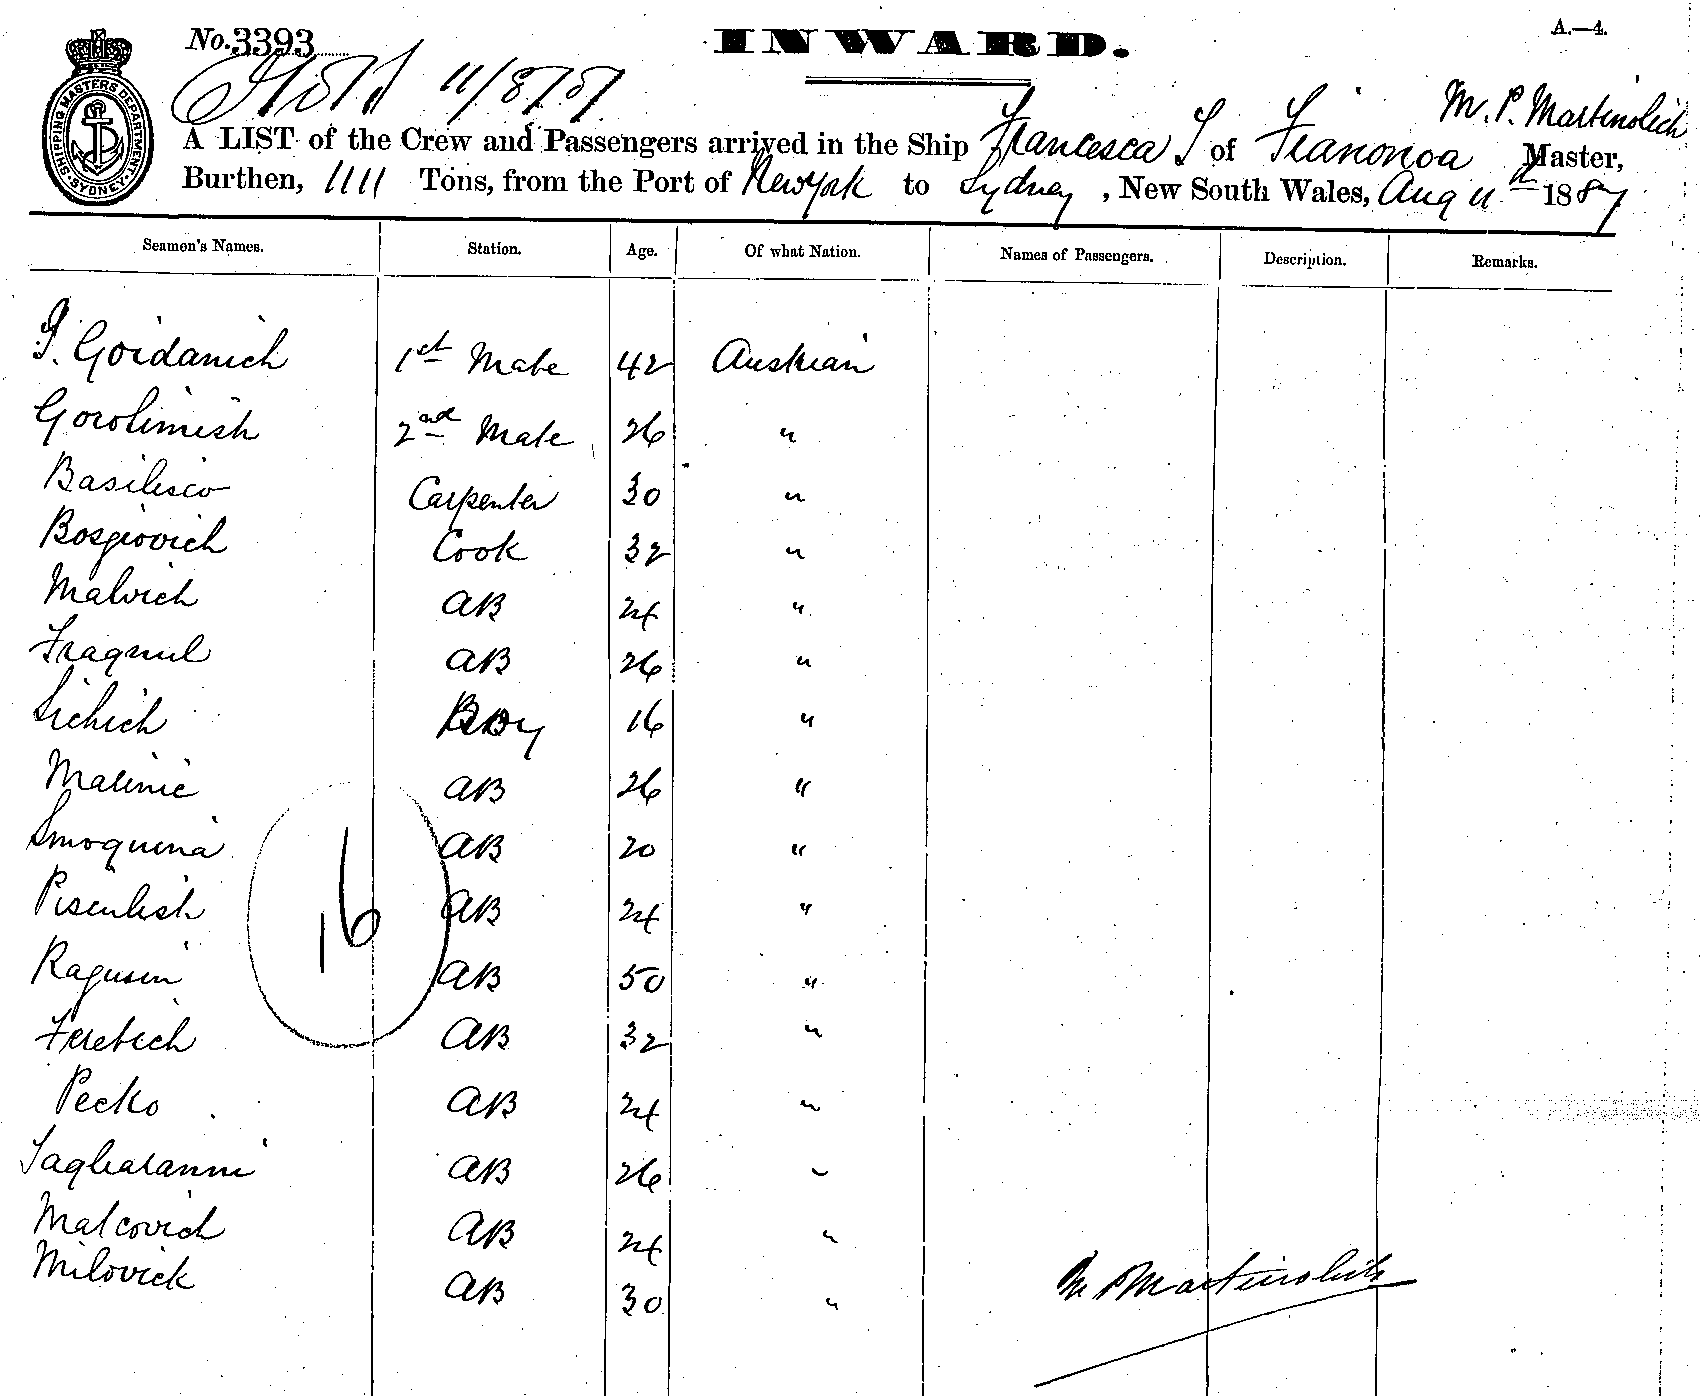 No. 3393
INWARD.
A.—4.
SHIPPING MASTERS DEPARTMENT SYDNEY
11/8/87
M. P. Martinolich
A LIST of the Crew and Passengers arrived in the Ship Francesca T of Master,
Burthen, 1111 Tons, from the Port of Newyork to Sydney, New South Wales, Aug 11th 1887
Seamen's Names. Station. Age. Of what Nation. Names of Passengers. Description. Remarks.
Goidanich 1st Mate 42 Austrian
Gorolimish 2nd Mate 26 "
Basilisco Carpenter 30 "
Bosgiovich Cook 32 "
Malvich AB 24 "
AB 26 "
Sichich Boy 16 "
Malinic AB 26 "
Smoquina AB 20 "
Pisenlish AB 24 "
Ragusin AB 50 "
Feretich AB 32 "
Pecko AB 24 "
AB 26 "
Malcovich AB 24 "
Milovick AB 30 "
16
M P Martinolich